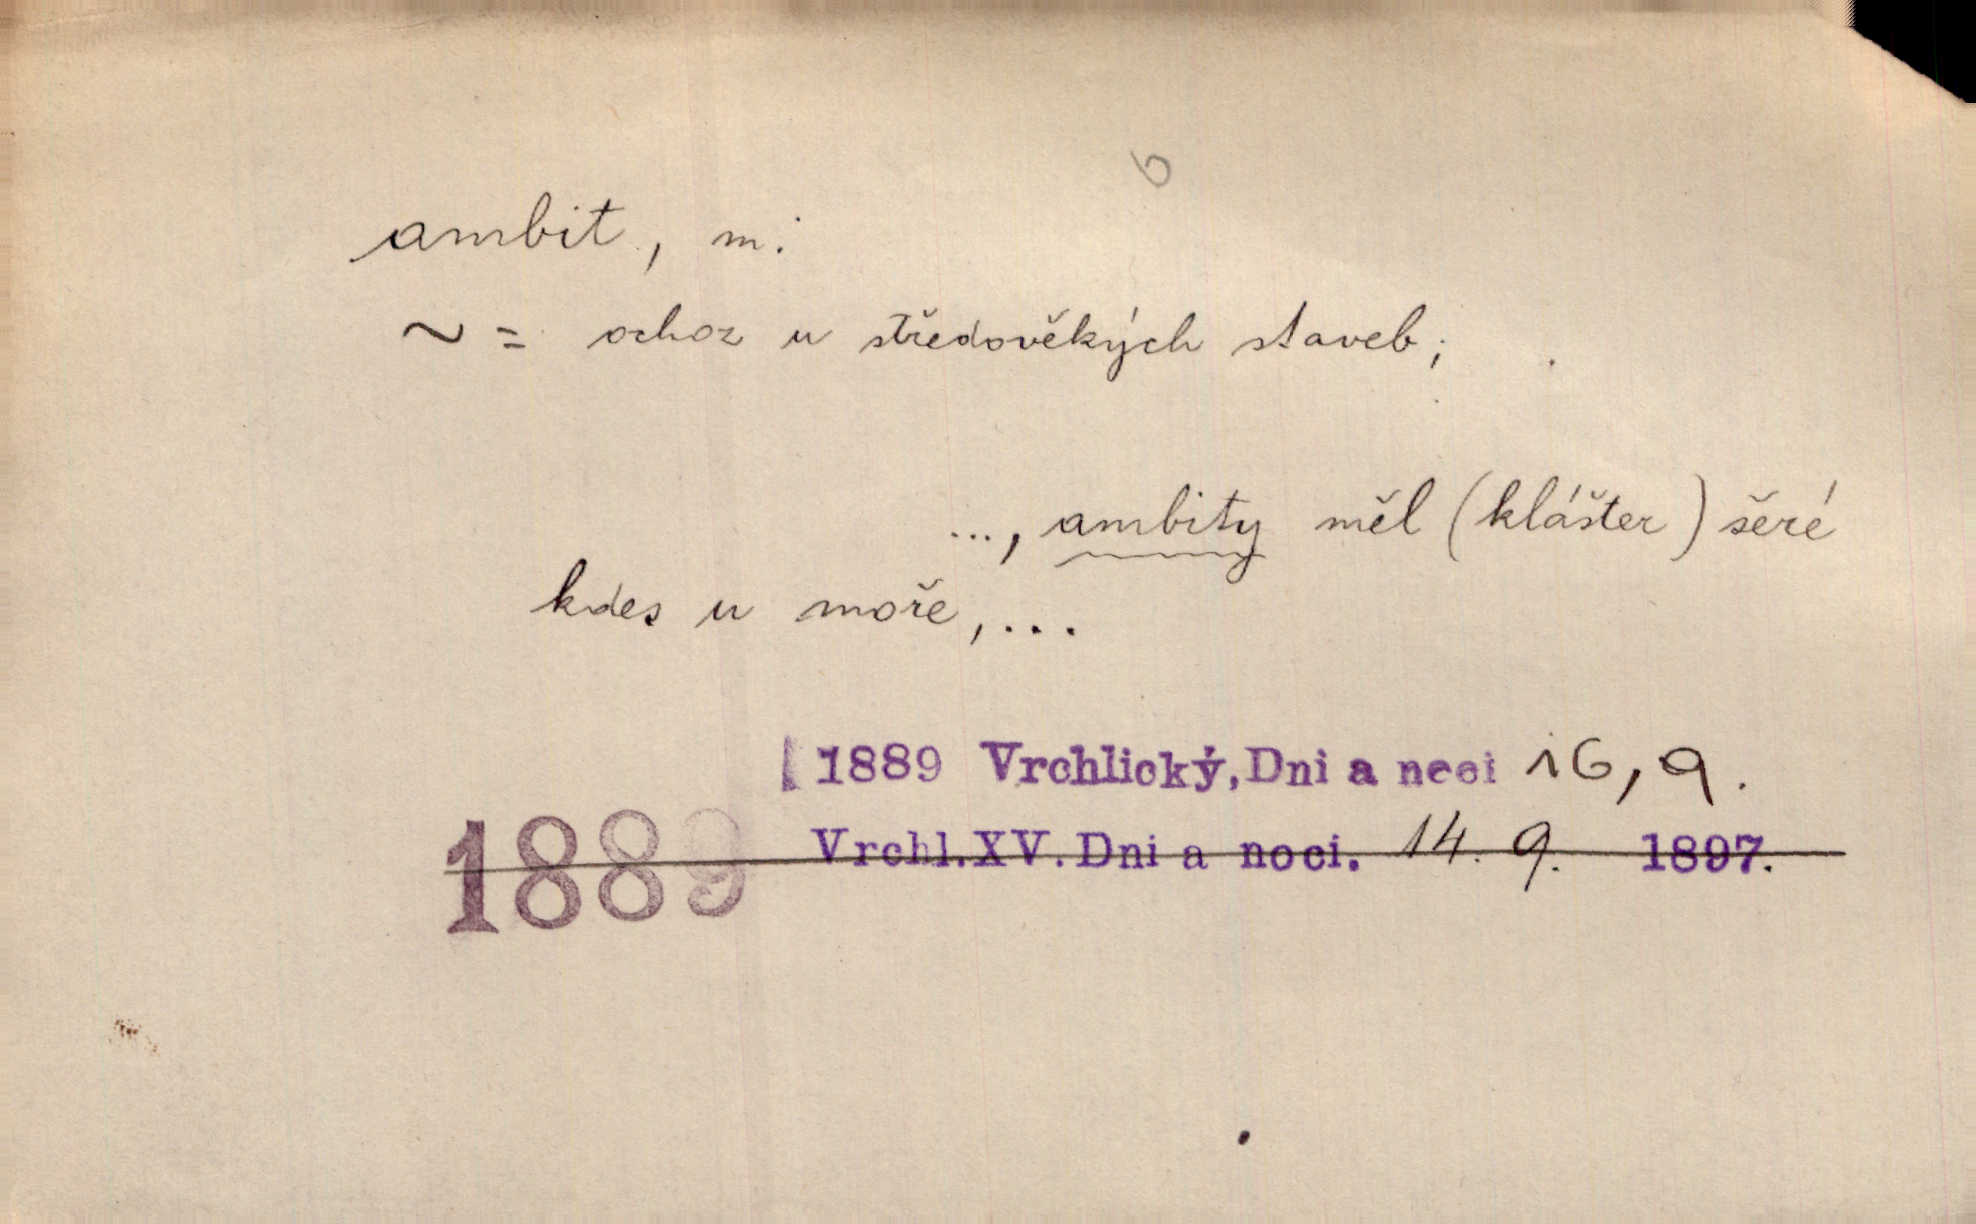 6
ambit, m.:
~ = ochoz u středověkých staveb;
..., ambity měl (klášter) šeré
kdes u moře, ...
1889 Vrchlický, Dni a noci 16, 9.
Vrchl. XV. Dni a noci. 14. 9. 1897.
1889